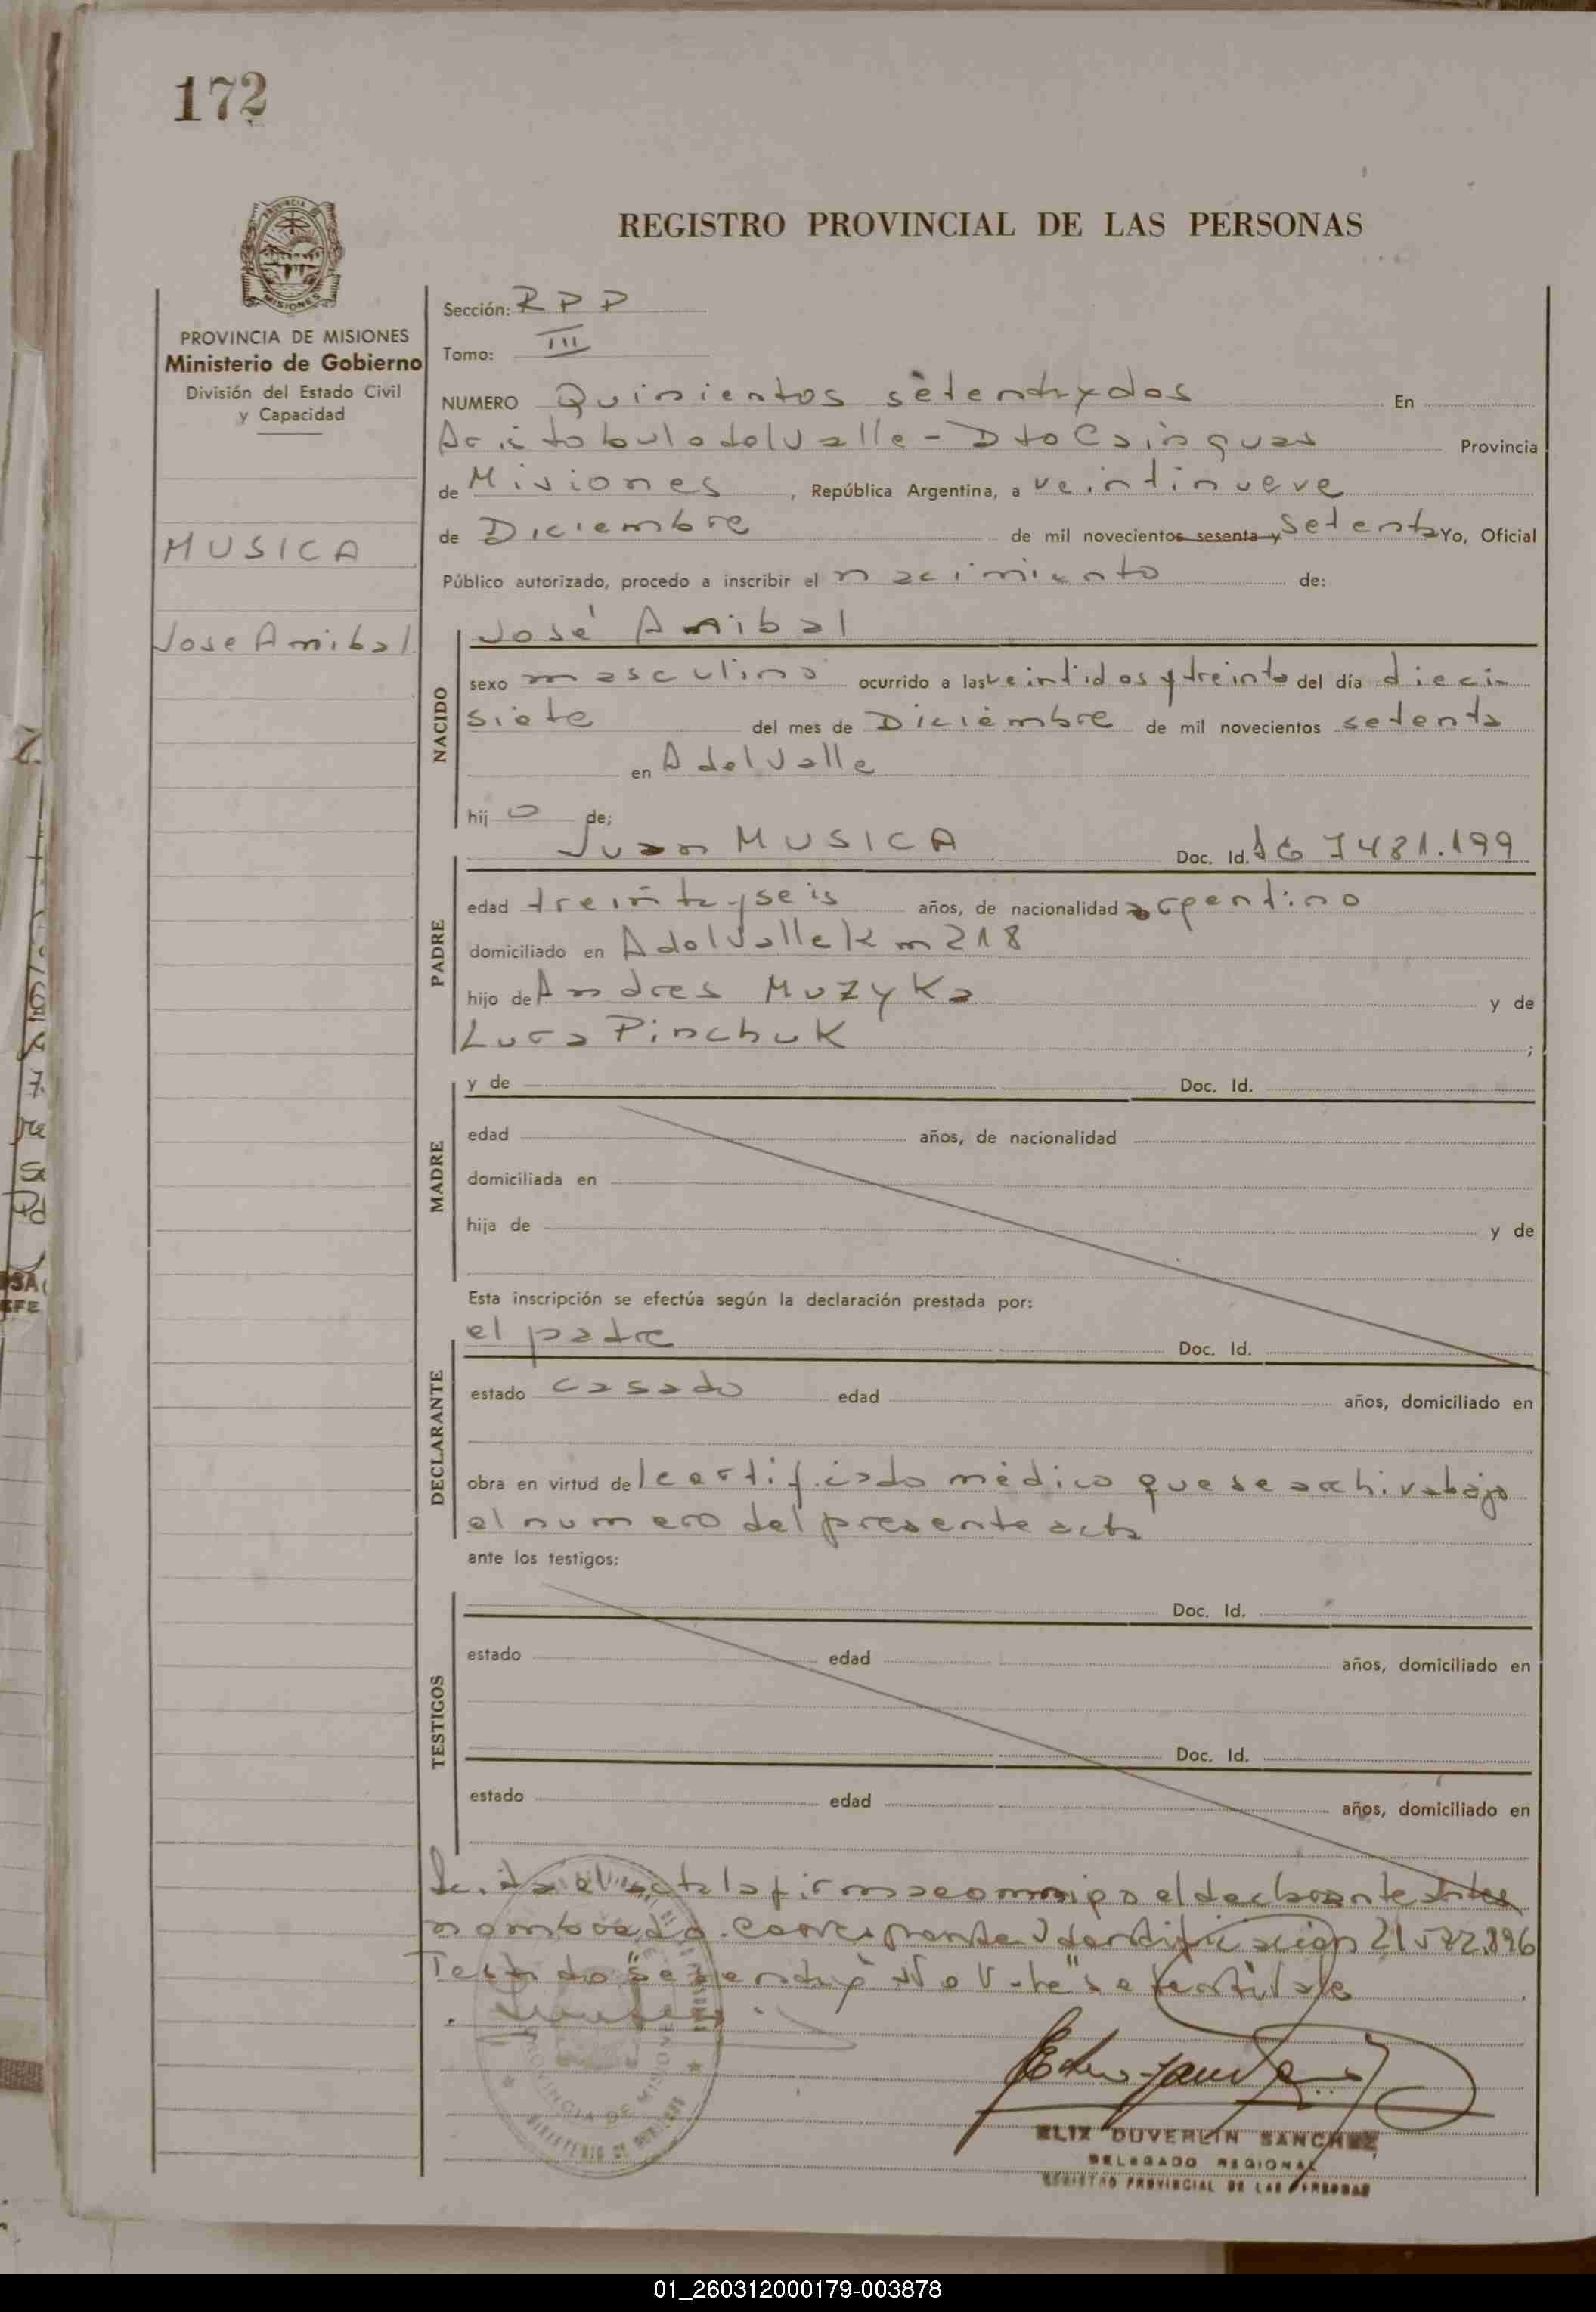 172
REGISTRO PROVINCIAL DE LAS PERSONAS
PROVINCIA DE MISIONES
Ministerio de Gobierno
División del Estado Civil
y Capacidad
MUSICA
Jose Anibal
Sección: RPP
Tomo: III
NUMERO Quinientos setentaydos En
Aristobulo del Valle - Dto Cainguas Provincia
de Misiones, República Argentina, a veintinueve
de Diciembre de mil novecientos sesenta y setenta Yo, Oficial
Público autorizado, procedo a inscribir el nacimiento de:
NACIDO
José Anibal
sexo masculino ocurrido a las veintidos y treinta del día dieci
siete del mes de Diciembre de mil novecientos setenta
en A del Valle
hijo de;
PADRE
Juan MUSICA Doc. Id. 7481.199
edad treinta y seis años, de nacionalidad argentino
domiciliado en A del Valle Km 218
hijo de Andres Muzyka y de
Luca Pinchuk ;
MADRE
y de Doc. Id.
edad años, de nacionalidad
domiciliada en
hija de y de
Esta inscripción se efectúa según la declaración prestada por:
DECLARANTE
el padre Doc. Id.
estado casado edad años, domiciliado en
obra en virtud del certificado médico que se archiva bajo
el numero del presente acta
ante los testigos:
TESTIGOS
Doc. Id.
estado edad años, domiciliado en
Doc. Id.
estado edad años, domiciliado en
Leida el acta la firma conmigo el declarante antes
nombrado. Corresponde Identificación 21.572.896
Testado "sesenta y" No Vale" setenta Vale
PROVINCIA DE MISIONES
MINISTERIO DE GOBIERNO
ELIX DUVERLIN SANCHEZ
DELEGADO REGIONAL
REGISTRO PROVINCIAL DE LAS PERSONAS
01_260312000179-003878